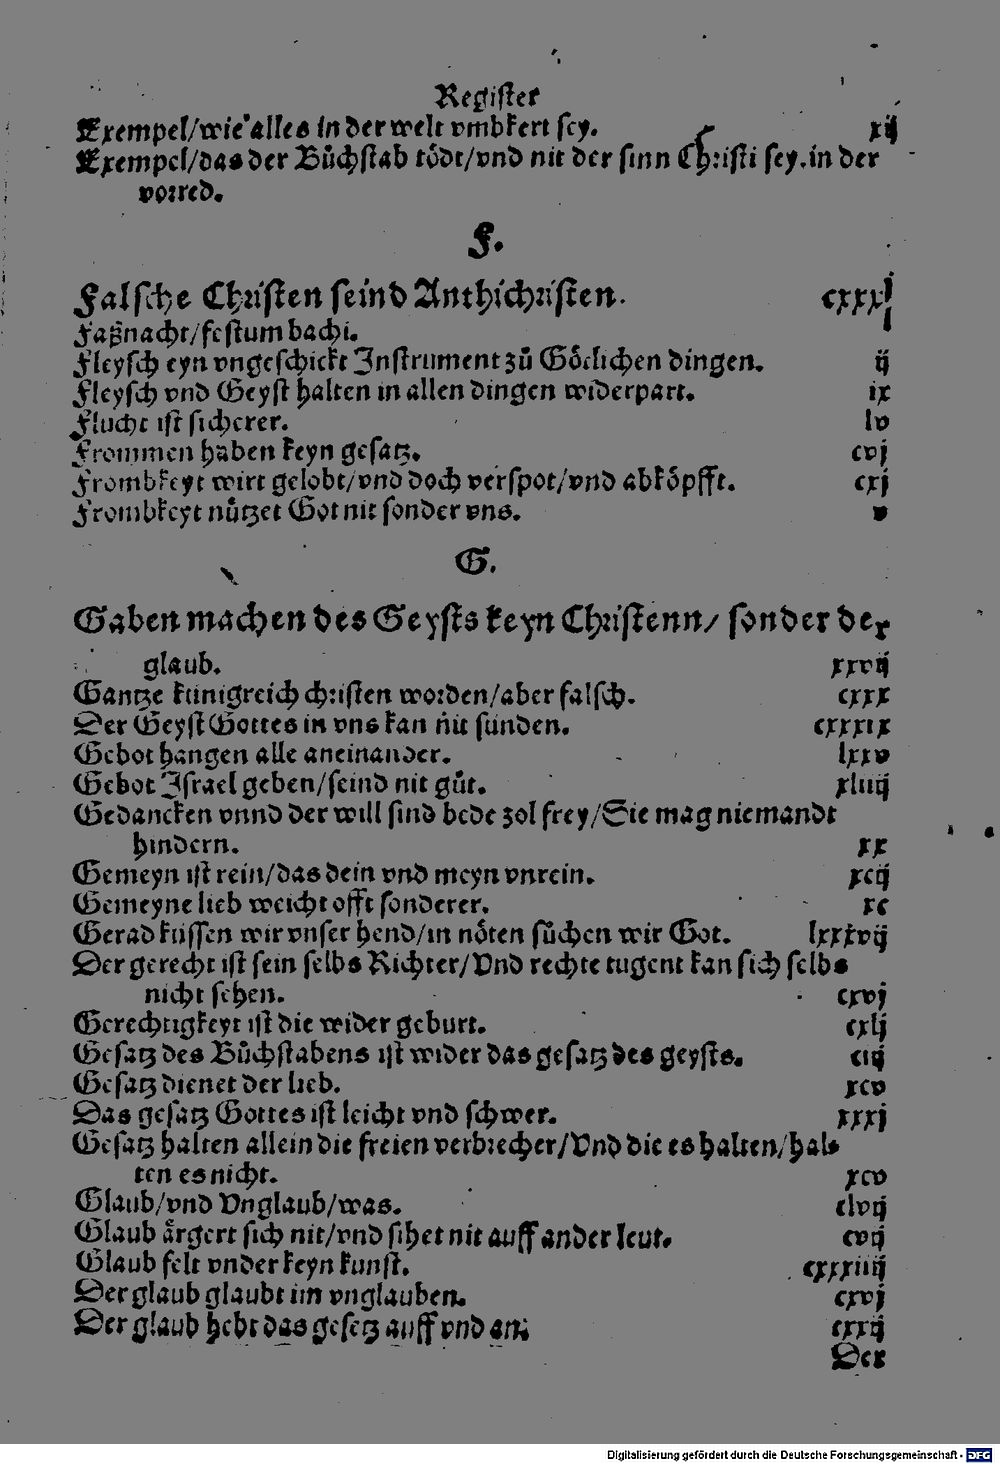 Register
Exempel/wie alles in der welt vmbkert sey. xij
Exempel/das der Bůchstab tödt/vnd nit der sinn Christi sey. in der
vorred.
F.
Falsche Christen seind Anthichristen. cxxxj
Faßnacht/festum bachi. j
Fleysch eyn vngeschickt Instrument zů Götlichen dingen. ij
Fleysch vnd Geyst halten in allen dingen widerpart. ix
Flucht ist sicherer. lv
Frommen haben keyn gesatz. cvj
Frombkeyt wirt gelobt/vnd doch verspot/vnd abköpfft. cxj
Frombkeyt nützet Got nit sonder vns. v
G.
Gaben machen des Geysts keyn Christenn/ sonder der
glaub. xxvij
Gantze künigreich christen worden/aber falsch. cxxx
Der Geyst Gottes in vns kan nit sünden. cxxxix
Gebot hangen alle aneinander. lxxv
Gebot Israel geben/seind nit gůt. xliiij
Gedancken vnnd der will sind bede zol frey/Sie mag niemandt
hindern. xx
Gemeyn ist rein/das dein vnd meyn vnrein. xcij
Gemeyne lieb weicht offt sonderer. xc
Gerad küssen wir vnser hend/in nöten sůchen wir Got. lxxxvij
Der gerecht ist sein selbs Richter/Vnd rechte tugent kan sich selbs
nicht sehen. cxvj
Gerechtigkeyt ist die wider geburt. cxlj
Gesatz des Bůchstabens ist wider das gesatz des geysts. ciij
Gesatz dienet der lieb. xcv
Das gesatz Gottes ist leicht vnd schwer. xxxj
Gesatz halten allein die freien verbrecher/Vnd die es halten/hal-
ten es nicht. xcv
Glaub/vnd Vnglaub/was. clvij
Glaub ärgert sich nit/vnd sihet nit auff ander leut. cvij
Glaub felt vnder keyn kunst. cxxxiiij
Der glaub glaubt im vnglauben. cxvj
Der glaub hebt das gesetz auff vnd an. cxxij
Der
Digitalisierung gefördert durch die Deutsche Forschungsgemeinschaft - DFG